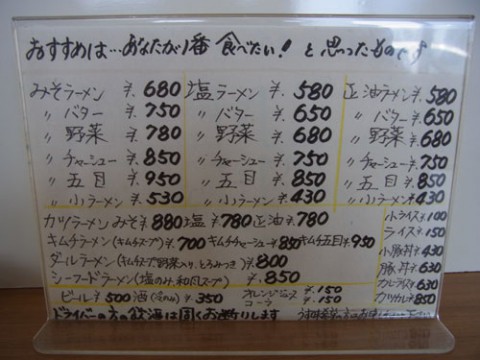 おすすめは…あなたが1番 食べたい! と思ったものです
みそラーメン ¥.680
〃 バター ¥.750
〃 野菜 ¥.780
〃 チャーシュー ¥.850
〃 五目 ¥.950
〃 小ラーメン ¥.530
塩ラーメン ¥.580
〃 バター ¥.650
〃 野菜 ¥.680
〃 チャーシュー ¥.750
〃 五目 ¥.850
〃 小ラーメン ¥.430
正油ラーメン ¥.580
〃 バター ¥.650
〃 野菜 ¥.680
〃 チャーシュー ¥.750
〃 五目 ¥.850
〃 小ラーメン ¥.430
カツラーメン みそ¥.880 塩¥.780 正油¥.780
キムチラーメン(キムチスープ)¥.700 キムチチャーシュー¥.850 キムチ五目¥.950
ダールラーメン(キムチスープ野菜入り、とろみつき)¥.800
シーフードラーメン(塩のみ、和風スープ) ¥.850
小ライス¥.100
ライス¥.150
小豚丼¥.430
豚丼¥.630
カレライス¥.630
カツカレー¥.850
ビール¥.500 酒 ¥.350
オレンジジュース ¥.150
コーラ ¥.150
ドライバーの方の飲酒は固くお断りします